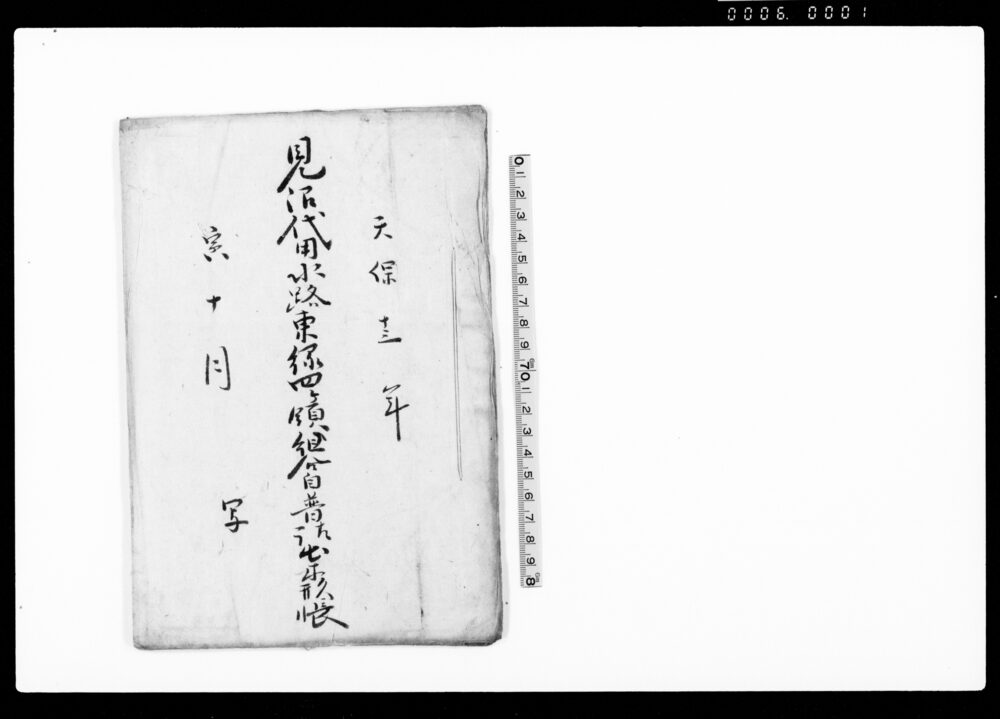 0006. 0001
天保十三年
見沼代用水路東縁四ヶ領組合自普請出来形帳
寅十月
写
0 1 2 3 4 5 6 7 8 9 10 1 2 3 4 5 6 7 8 9 8